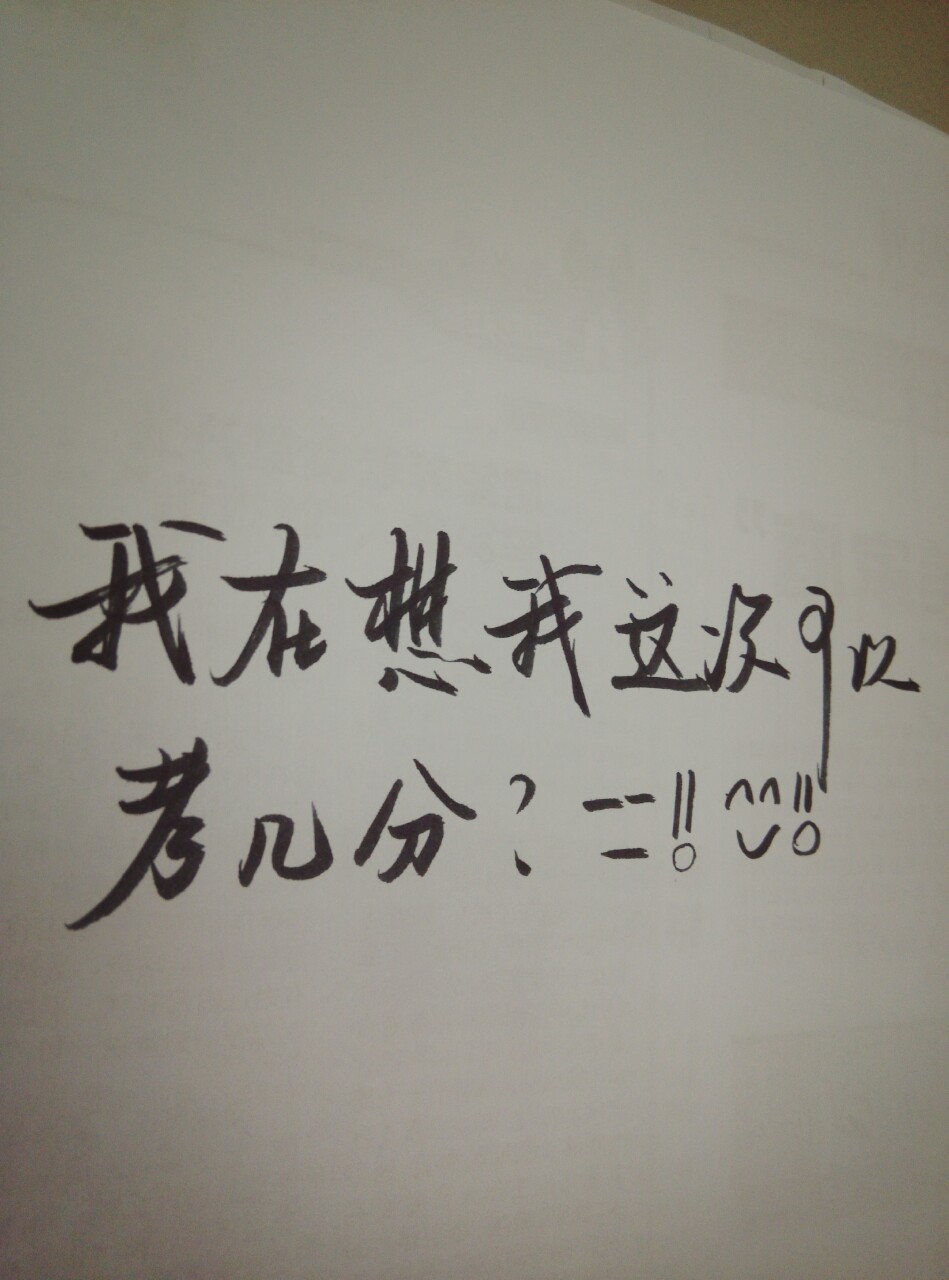 我在想我这次可以
考几分?